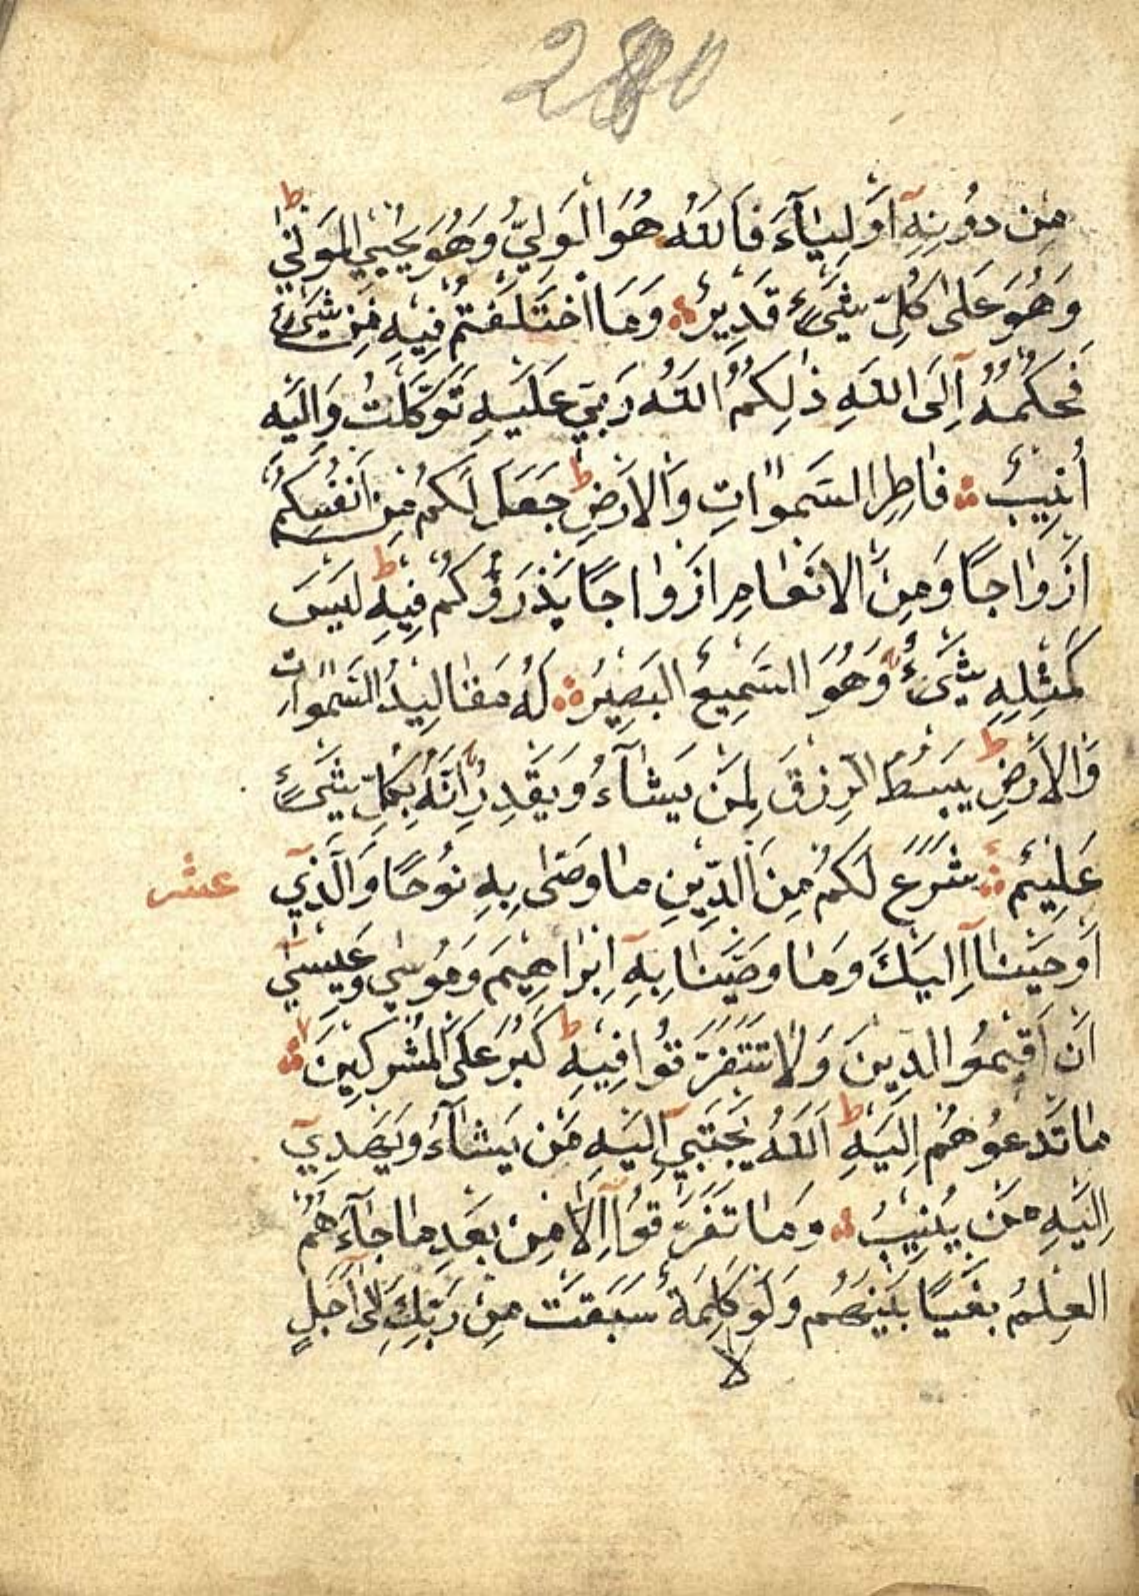 280
مِن دُونِهِٓ أَوْلِيَآءَ فَاللّٰهُ هُوَ الْوَلِيُّ وَهُوَ يُحْيِي الْمَوْتٰى ط
وَهُوَ عَلٰى كُلِّ شَيْءٍ قَدِيرٌ ۞ وَمَا اخْتَلَفْتُمْ فِيهِ مِنْ شَيْءٍ
فَحُكْمُهُٓ اِلَى اللّٰهِ ذٰلِكُمُ اللّٰهُ رَبِّي عَلَيْهِ تَوَكَّلْتُ وَاِلَيْهِ
أُنِيبُ ۞ فَاطِرِ السَّمٰوَاتِ وَالْاَرْضِ ط جَعَلَ لَكُمْ مِنْ اَنْفُسِكُمْ
اَزْوَاجًا وَمِنَ الْاَنْعَامِ اَزْوَاجًا يَذْرَؤُكُمْ فِيهِ ط لَيْسَ
كَمِثْلِهِ شَيْءٌ وَهُوَ السَّمِيعُ الْبَصِيرُ ۞ لَهُ مَقَالِيدُ السَّمٰوَاتِ
وَالْاَرْضِ ط يَبْسُطُ الرِّزْقَ لِمَنْ يَشَآءُ وَيَقْدِرُ اِنَّهُ بِكُلِّ شَيْءٍ
عَلِيْمٌ ۞ شَرَعَ لَكُمْ مِنَ الدِّينِ مَا وَصّٰى بِهِ نُوحًا وَالَّذِيٓ
عشر
اَوْحَيْنَآ اِلَيْكَ وَمَا وَصَّيْنَا بِهِٓ اِبْرَاهِيمَ وَمُوسٰى وَعِيسٰىٓ
اَنْ اَقِيْمُوا الدِّينَ وَلَا تَتَفَرَّقُوا فِيهِ ط كَبُرَ عَلَى الْمُشْرِكِينَ ۞
مَا تَدْعُوهُمْ اِلَيْهِ ط اَللّٰهُ يَجْتَبِيٓ اِلَيْهِ مَنْ يَشَآءُ وَيَهْدِيٓ
اِلَيْهِ مَنْ يُنِيبُ ۞ وَمَا تَفَرَّقُوٓا اِلَّا مِنْ بَعْدِ مَا جَآءَهُمُ
الْعِلْمُ بَغْيًا بَيْنَهُمْ وَلَوْ كَلِمَةٌ سَبَقَتْ مِنْ رَبِّكَ اِلٰٓى اَجَلٍ
لا